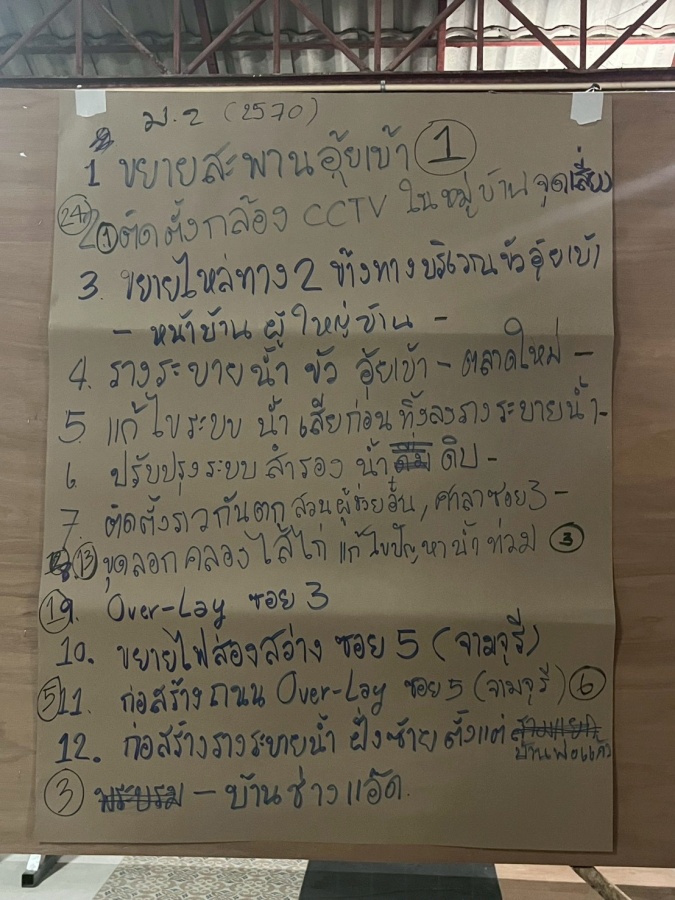 ม.2 (2570)
1 ขยายสะพานอุ้ยเข้า ①
㉔ 2 ① ติดตั้งกล้อง CCTV ในหมู่บ้าน จุดเสี่ยง
3. ขยายไหล่ทาง 2 ข้างทางบริเวณขัวอุ้ยเข้า
- หน้าบ้าน ผู้ใหญ่บ้าน -
4. รางระบายน้ำ ขัว อุ้ยเข้า - ตลาดใหม่ -
5. แก้ไขระบบ น้ำเสียก่อนทิ้งลงรางระบายน้ำ -
6 ปรับปรุงระบบสำรอง น้ำ ดิบ -
7. ติดตั้งราวกันตก สวนผู้ช่วยอั๋น, ศาลาซอย 3 -
⑬ ขุดลอกคลองไส้ไก่ แก้ไขปัญหาน้ำท่วม ③
① 9. Over-Lay ซอย 3
10. ขยายไฟส่องสว่าง ซอย 5 (จามจุรี)
⑤ 11. ก่อสร้างถนน Over-Lay ซอย 5 (จามจุรี) ⑥
12. ก่อสร้างรางระบายน้ำ ฝั่งซ้าย ตั้งแต่ สามแยก
บ้านพ่อแก้ว
③ พระบรม - บ้านช่างแอ๊ด.